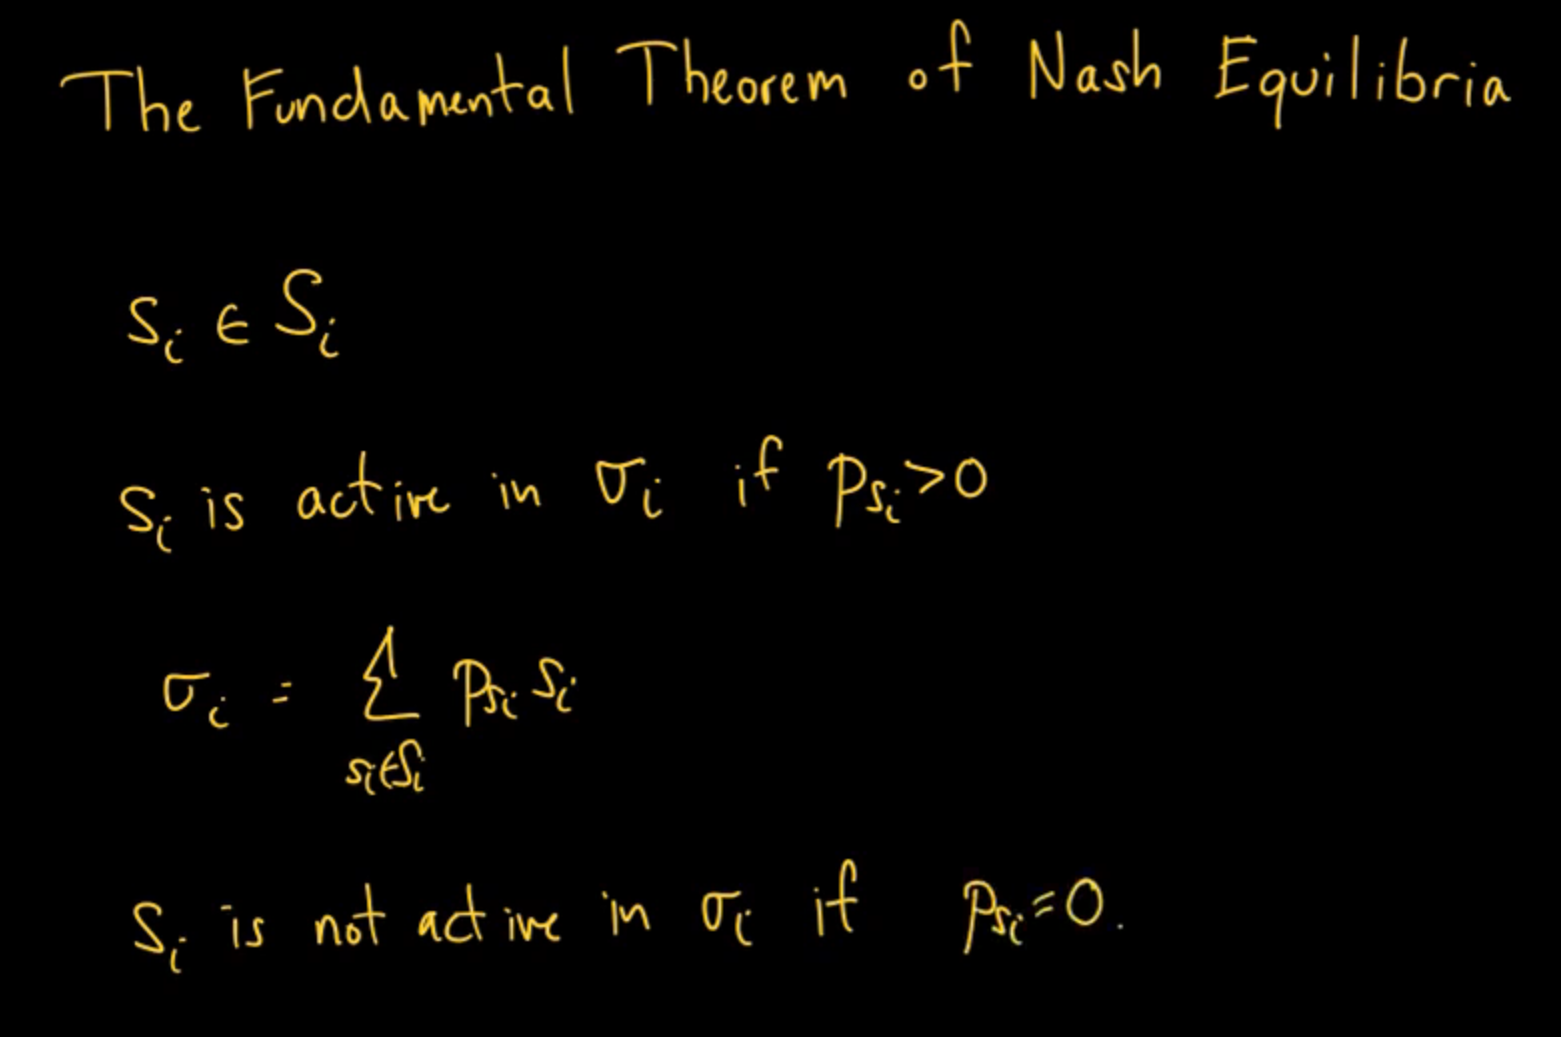 The Fundamental Theorem of Nash Equilibria
sᵢ ∈ Sᵢ
sᵢ is active in σᵢ if p_{sᵢ}>0
σᵢ = ∑_{sᵢ∈Sᵢ} p_{sᵢ} sᵢ
sᵢ is not active in σᵢ if p_{sᵢ}=0.